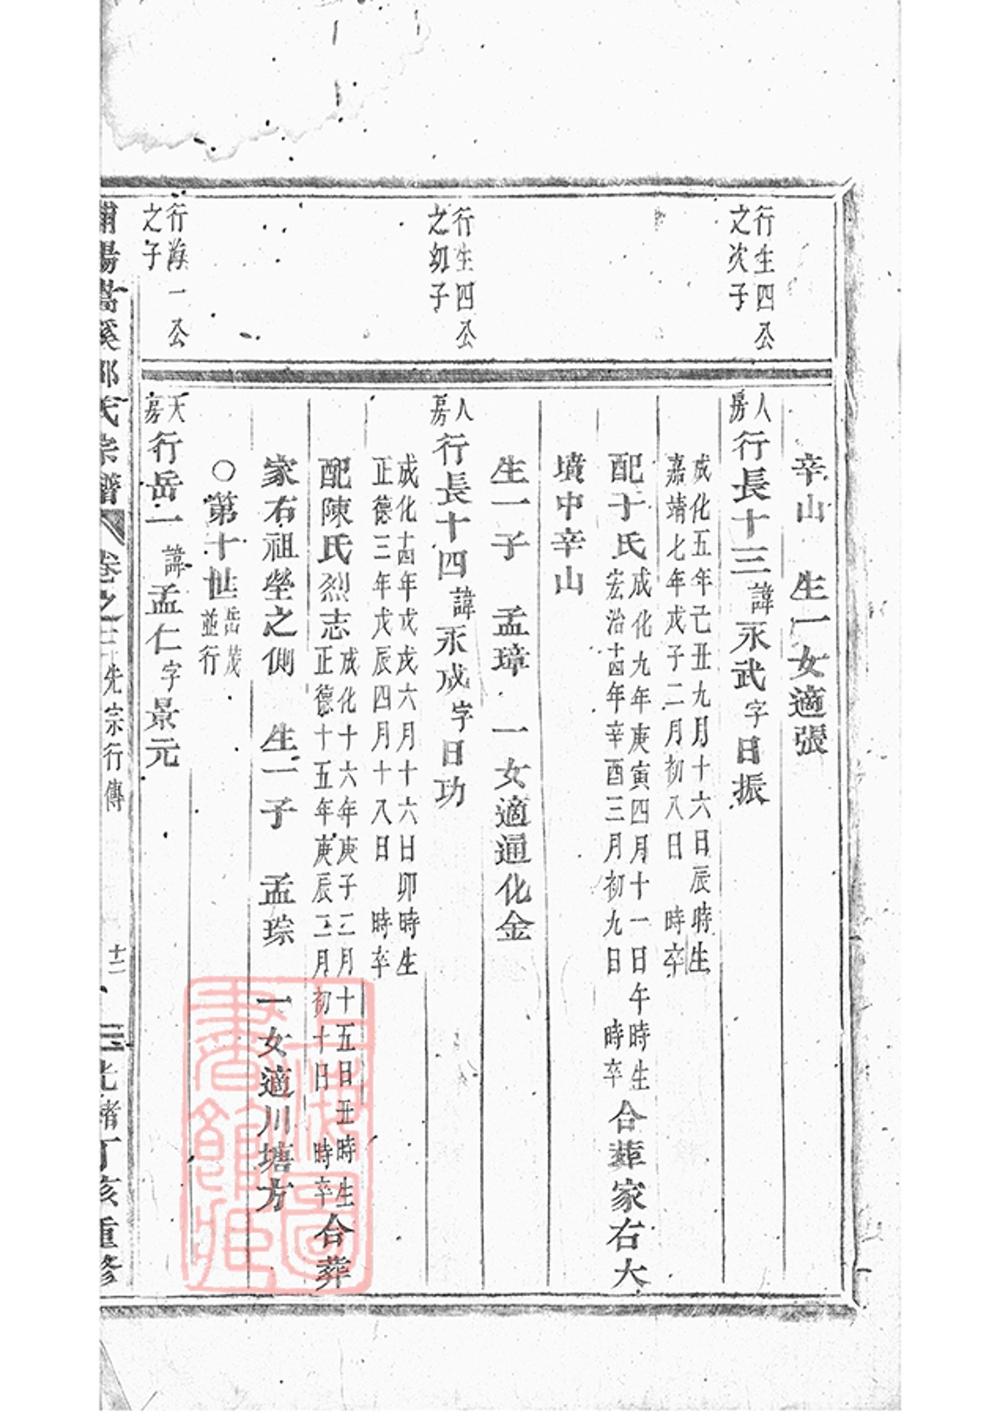 辛山　生一女適張
行生四公
之次子
人房行長十三諱永武字日振
成化五年己丑九月十六日辰時生
嘉靖七年戊子二月初八日　時卒
配于氏成化九年庚寅四月十一日午時生
宏治十四年辛酉三月初九日　時卒合葬家右大
墳中辛山
生一子　孟璋　一女適通化金
行生四公
之幼子
人房行長十四諱永成字日功
成化十四年戊戌六月十六日卯時生
正德三年戊辰四月十八日　時卒
配陳氏烈志成化十六年庚子二月十五日丑時生
正德十五年庚辰二月初十日　時卒合葬
家右祖塋之側　生一子　孟琮　一女適川塘方
○第十世岳茂並行
行海一公
之子
天房行岳一諱孟仁字景元
浦陽嵩溪邵氏宗譜　卷之三先宗行傳　十二　光緒丁亥重修
上海圖書館藏